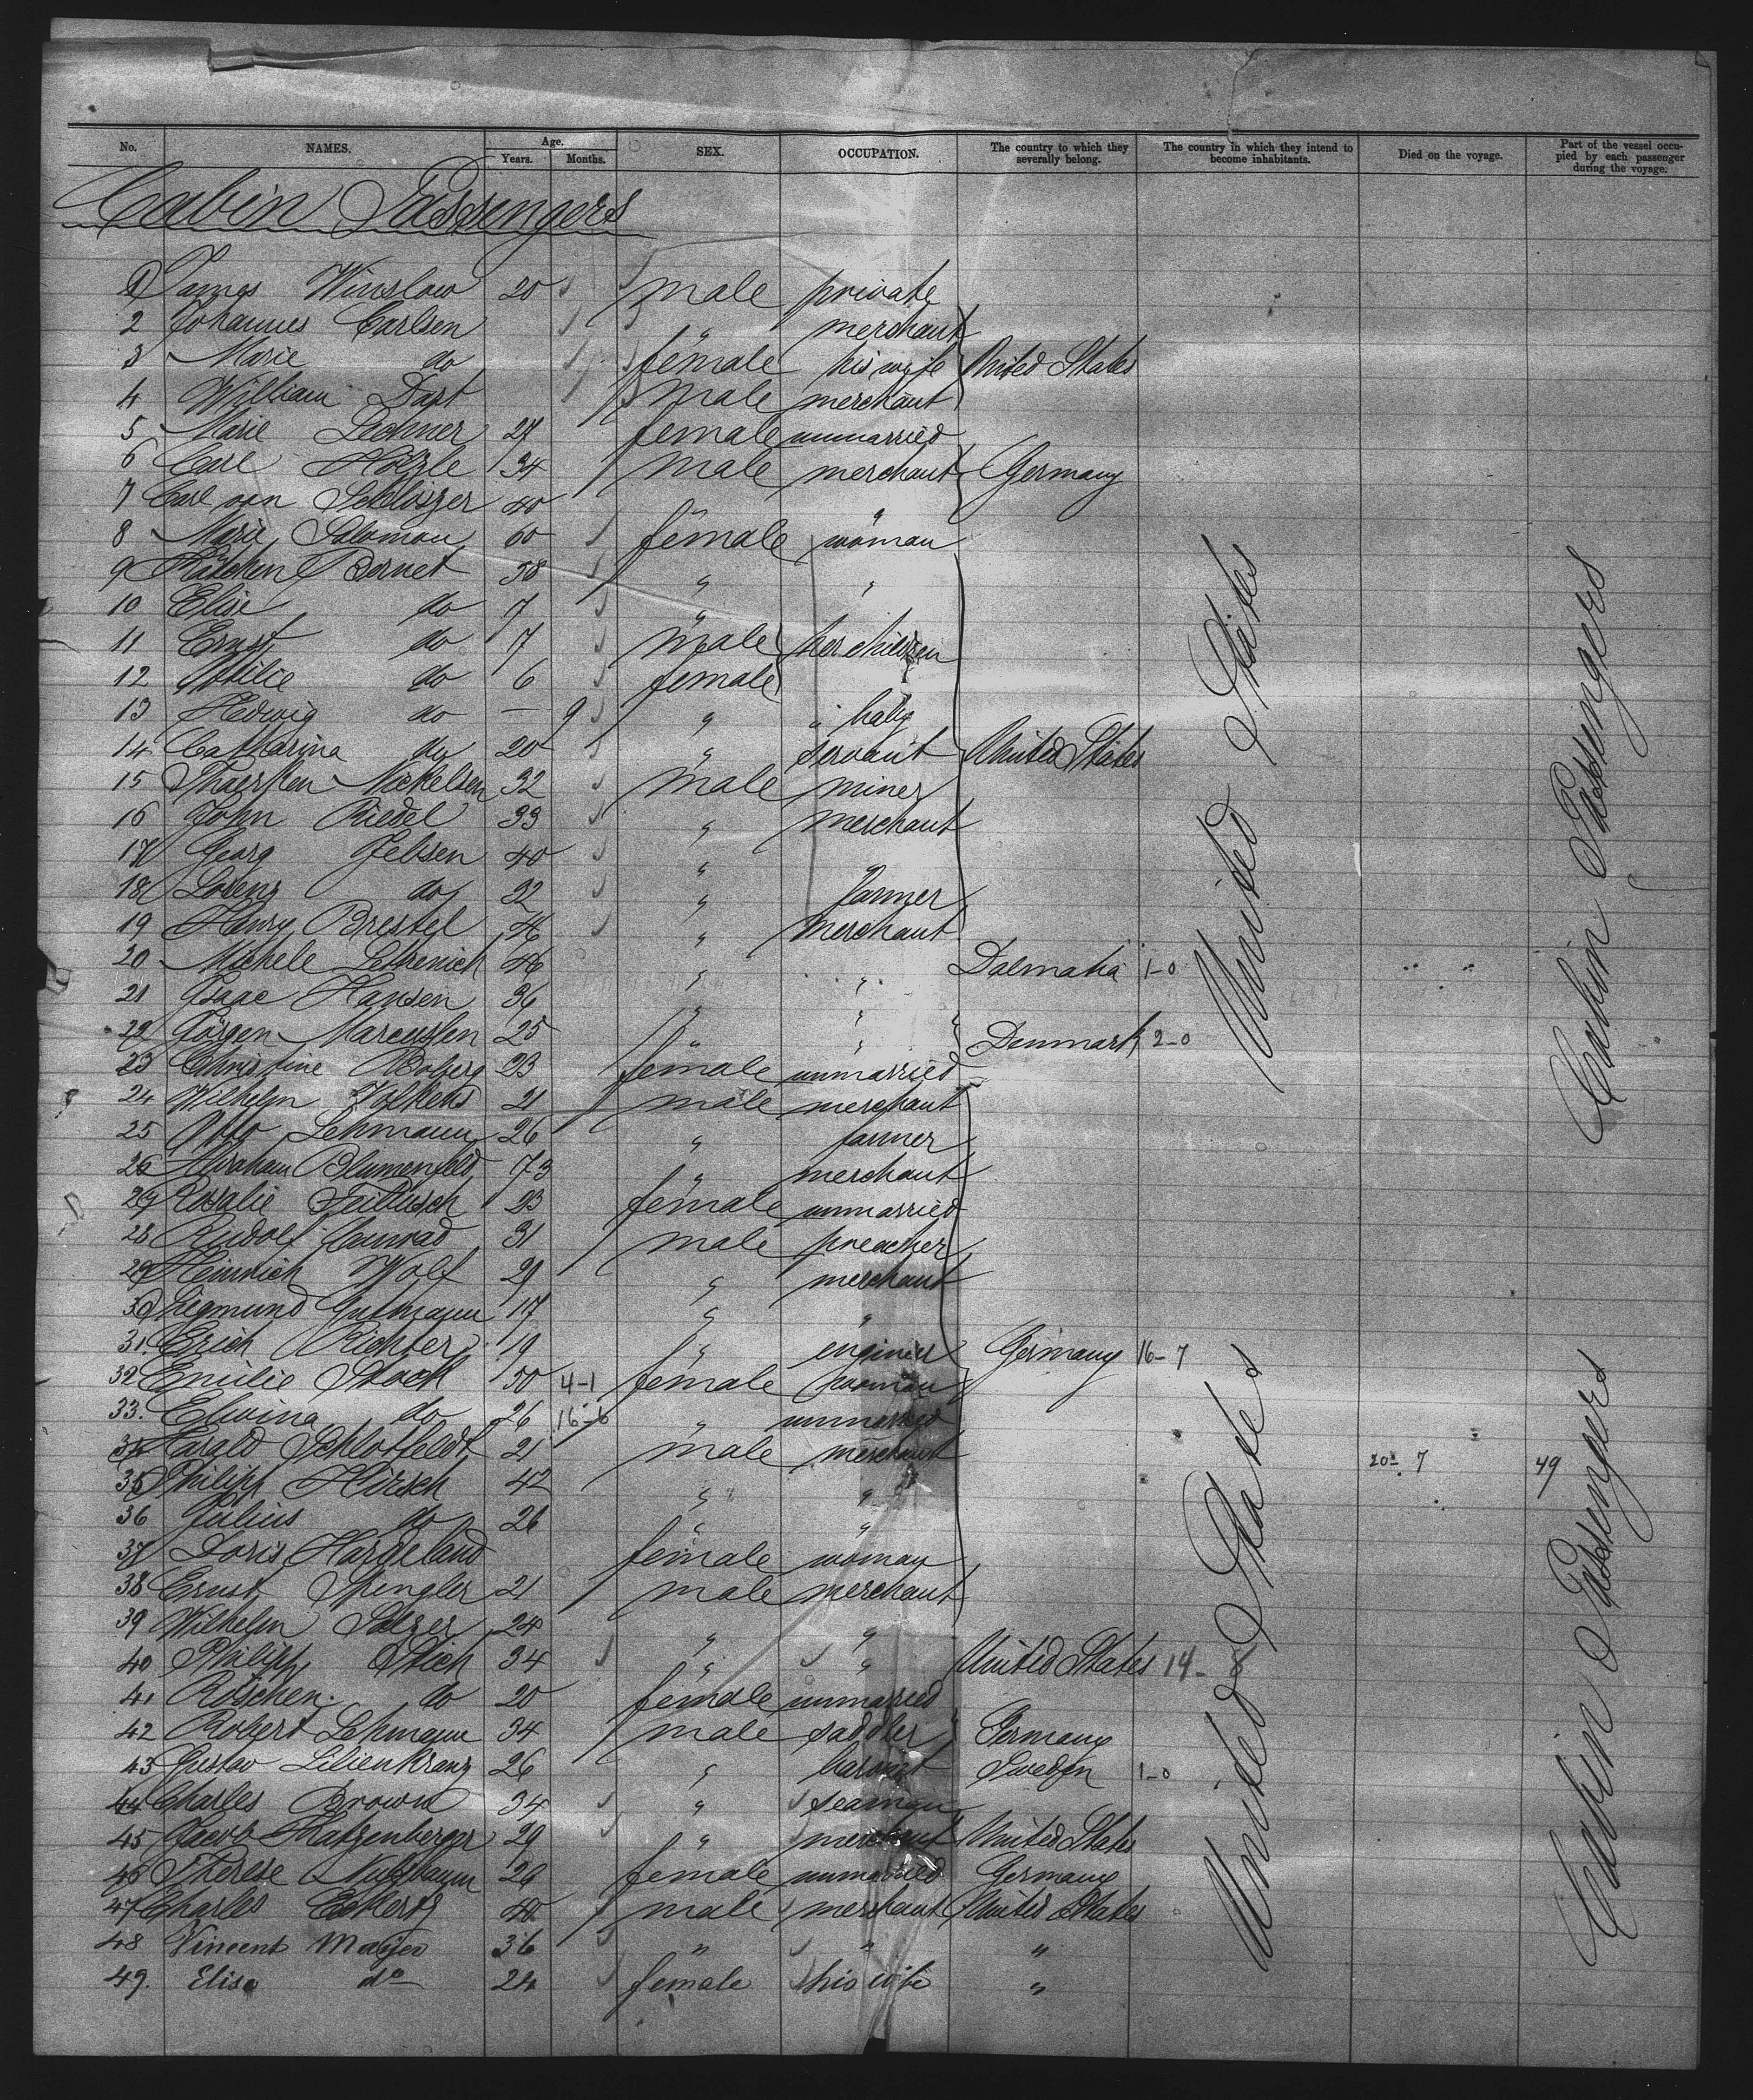 No. NAMES. Age. Years. Months. SEX. OCCUPATION. The country to which they severally belong. The country in which they intend to become inhabitants. Died on the voyage. Part of the vessel occupied by each passenger during the voyage.
Cabin Passengers
1 James Winslow 20 male private
2 Johannes Carlsen " merchant
3 Marie do female his wife United States
4 William Dart male merchant
5 Marie Lechner 27 female unmarried
6 Carl Hölzle 34 male merchant Germany
7 Carl von Schlözer 40 " "
8 Marie Salomon 60 female woman
9 Käthchen Bernet 38 " "
10 Elise do 7 "
11 Ernst do 7 male her children
12 Ottilie do 6 female
13 Hedwig do — 9 " " baby
14 Catharina do 20 " servant United States
15 Mickelsen 32 male miner
16 John Riedel 33 " merchant
17 Georg Jebsen 40 " "
18 Lorenz do 32 " farmer
19 Henry Brestel 46 " merchant
20 Michele 46 " " Dalmatia 1-0
21 Isaac Hansen 36 " "
22 Jörgen Marcussen 25 " " Denmark 2-0
23 Christine Boberg 23 female unmarried
24 Wilhelm Volkens 21 male merchant
25 Otto Lehmann 26 " farmer
26 Abraham Blumenfeld 73 " merchant
27 Rosalie Feibusch 23 female unmarried
28 Rudolf Conrad 31 male preacher
29 Heinrich Wolf 29 " merchant
30 Siegmund Gutmann 17 " "
31. Erich Richter 19 " engineer Germany 16-7
32 Emilie Stock 50 4-1 female woman
33. Elwina do 26 16-6 " unmarried
34 Harald Schlotfeldt 21 male merchant 20-7 49
35 Philipp Hirsch 42 " "
36 Julius do 26 " "
37 Doris Hargeland female woman
38 Ernst Spengler 21 male merchant
39 Wilhelm Selzer 24 " "
40 Philipp Stich 34 " " United States 14-8
41 Röschen do 20 female unmarried
42 Robert Lehmann 34 male saddler Germany
43 Gustav Lilienkranz 26 " Sweden 1-0
44 Charles Brown 34 " seaman
45 Jacob Katzenberger 29 " merchant United States
46 Therese Nussbaum 29 female unmarried Germany
47 Charles Eckertz 40 male merchant United States
48 Vincent Majer 36 " " "
49. Elise do 24 female his wife "
United States
Cabin Passengers
United States
Cabin Passengers